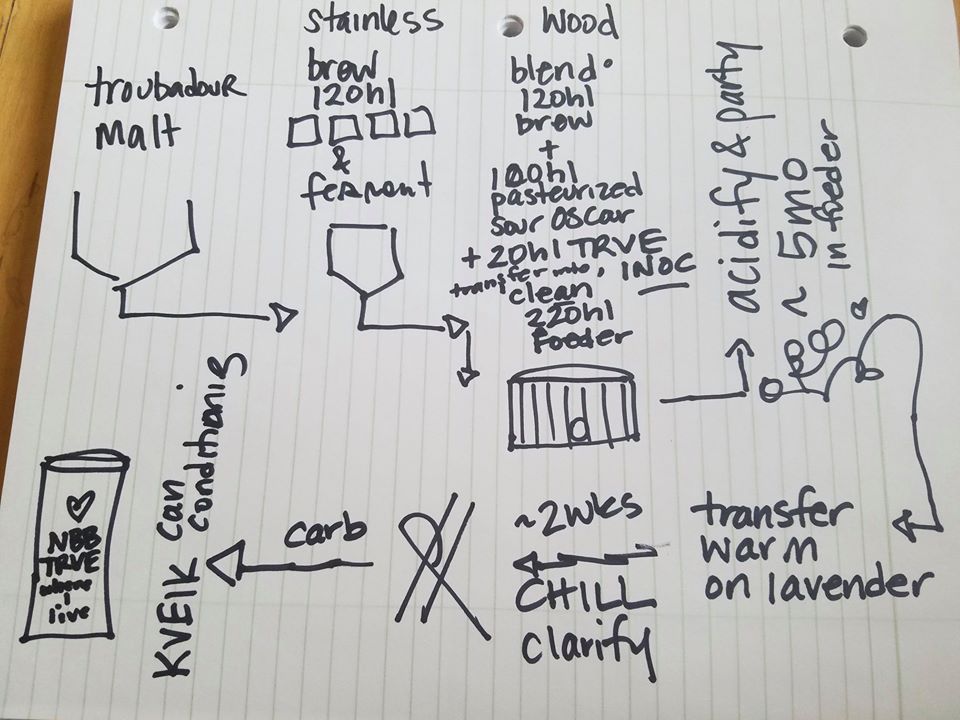 troubadour
malt
stainless
brew
120hl
&
ferment
wood
blend
120hl
brew
+
100hl
pasteurized
sour oscar
+ 20hl TRVE
INOC
transfer into
clean
220hl
foeder
acidify & party
~ 5mo
in foeder
transfer
warm
on lavender
~2wks
CHILL
clarify
carb
KVEIK can
conditionig
NBB
TRVE
where
i
live